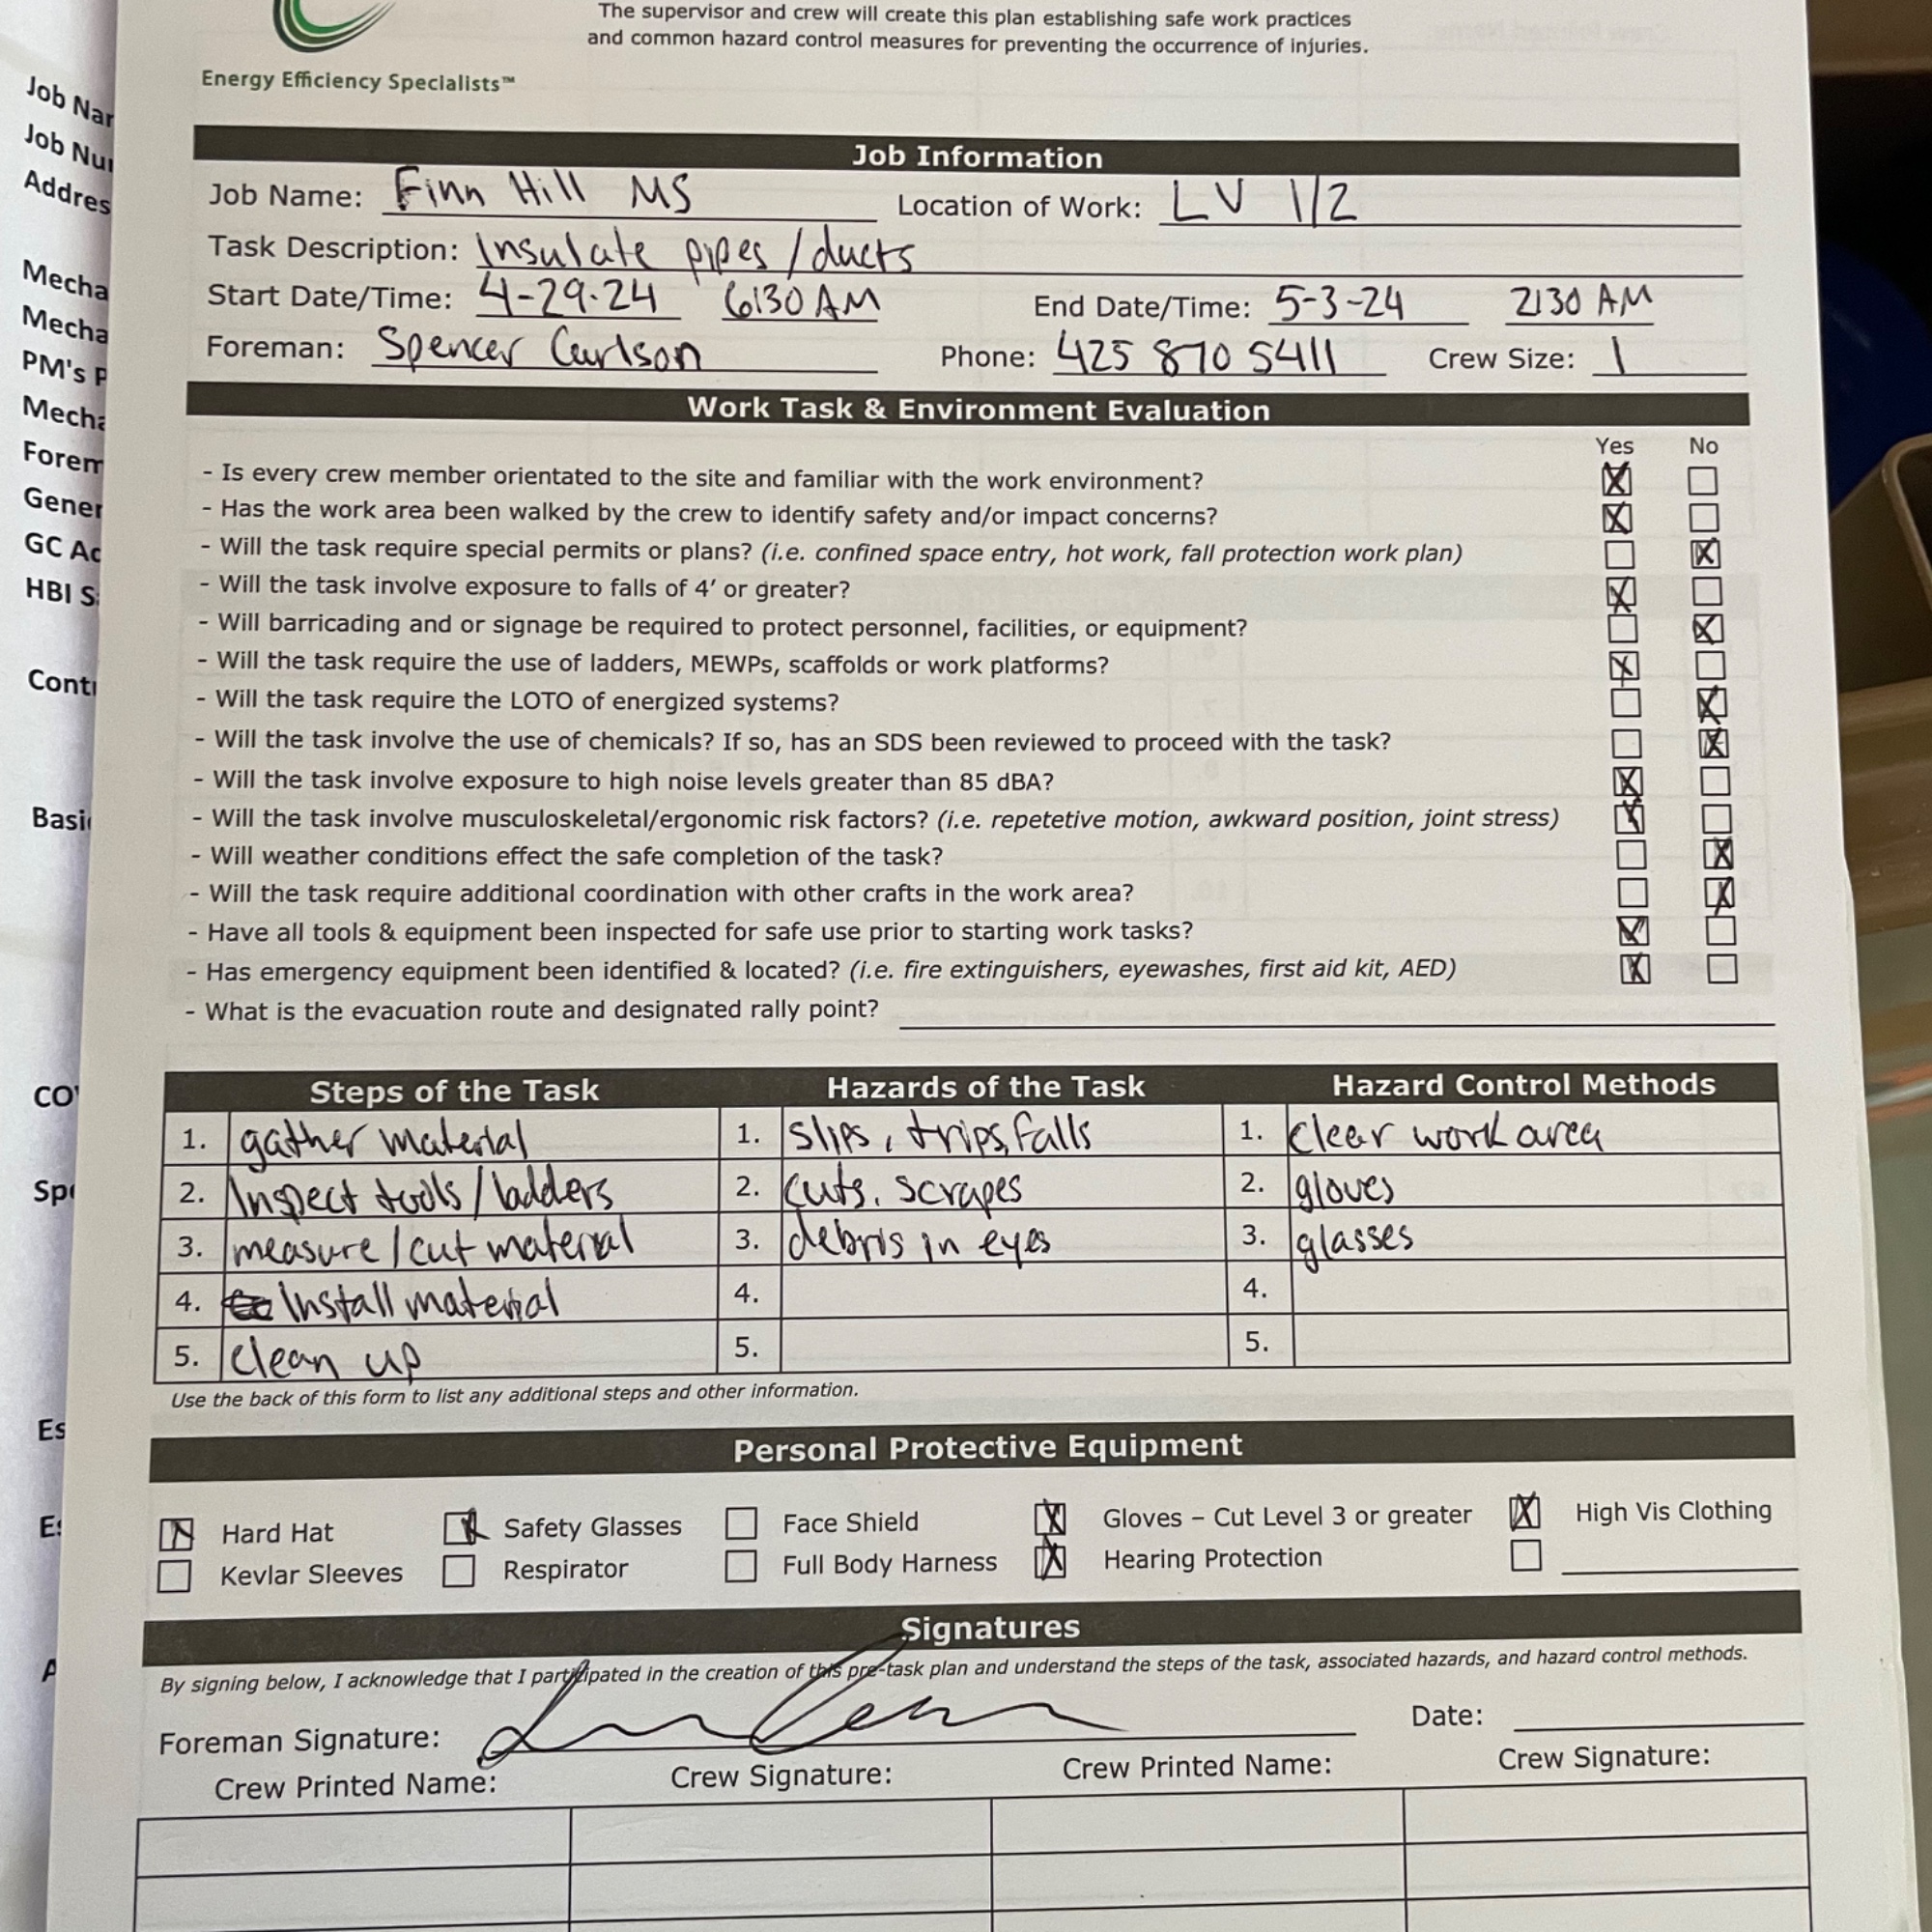 The supervisor and crew will create this plan establishing safe work practices
and common hazard control measures for preventing the occurrence of injuries.
Energy Efficiency Specialists™
Job Information
Job Name: Finn Hill MS Location of Work: LV 1/2
Task Description: Insulate pipes/ducts
Start Date/Time: 4-29-24 6:30 AM End Date/Time: 5-3-24 2:30 AM
Foreman: Spencer Carlson Phone: 425 870 5411 Crew Size: 1
Work Task & Environment Evaluation
Yes No
- Is every crew member orientated to the site and familiar with the work environment? X
- Has the work area been walked by the crew to identify safety and/or impact concerns? X
- Will the task require special permits or plans? (i.e. confined space entry, hot work, fall protection work plan) X
- Will the task involve exposure to falls of 4' or greater? X
- Will barricading and or signage be required to protect personnel, facilities, or equipment? X
- Will the task require the use of ladders, MEWPs, scaffolds or work platforms? X
- Will the task require the LOTO of energized systems? X
- Will the task involve the use of chemicals? If so, has an SDS been reviewed to proceed with the task? X
- Will the task involve exposure to high noise levels greater than 85 dBA? X
- Will the task involve musculoskeletal/ergonomic risk factors? (i.e. repetetive motion, awkward position, joint stress) X
- Will weather conditions effect the safe completion of the task? X
- Will the task require additional coordination with other crafts in the work area? X
- Have all tools & equipment been inspected for safe use prior to starting work tasks? X
- Has emergency equipment been identified & located? (i.e. fire extinguishers, eyewashes, first aid kit, AED) X
- What is the evacuation route and designated rally point?
Steps of the Task Hazards of the Task Hazard Control Methods
1. gather material 1. slips, trips, falls 1. clear work area
2. Inspect tools/ladders 2. cuts, scrapes 2. gloves
3. measure/cut material 3. debris in eyes 3. glasses
4. Install material 4. 4.
5. clean up 5. 5.
Use the back of this form to list any additional steps and other information.
Personal Protective Equipment
X Hard Hat X Safety Glasses Face Shield X Gloves – Cut Level 3 or greater X High Vis Clothing
Kevlar Sleeves Respirator Full Body Harness X Hearing Protection
Signatures
By signing below, I acknowledge that I participated in the creation of this pre-task plan and understand the steps of the task, associated hazards, and hazard control methods.
Foreman Signature: Date:
Crew Printed Name: Crew Signature: Crew Printed Name: Crew Signature:
Job Nar
Job Nu
Addres
Mecha
Mecha
PM's P
Mecha
Forem
Gener
GC Ac
HBI S
Cont
Basi
CO
Sp
Es
Es
A